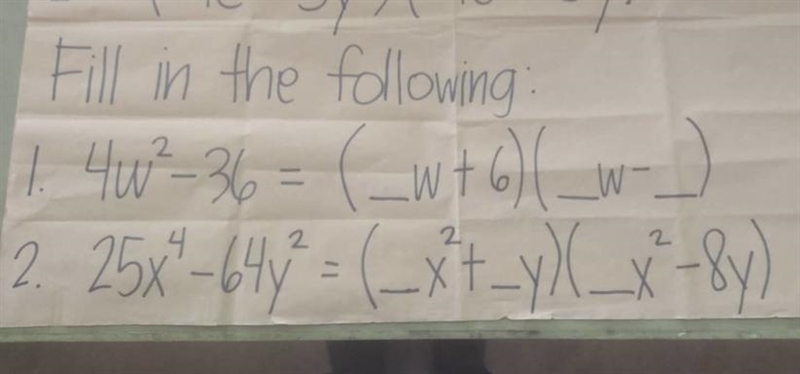 Fill in the following:
1. 4w²-36 = (_w+6)(_w-_)
2. 25x⁴-64y² = (_x²+_y)(_x²-8y)